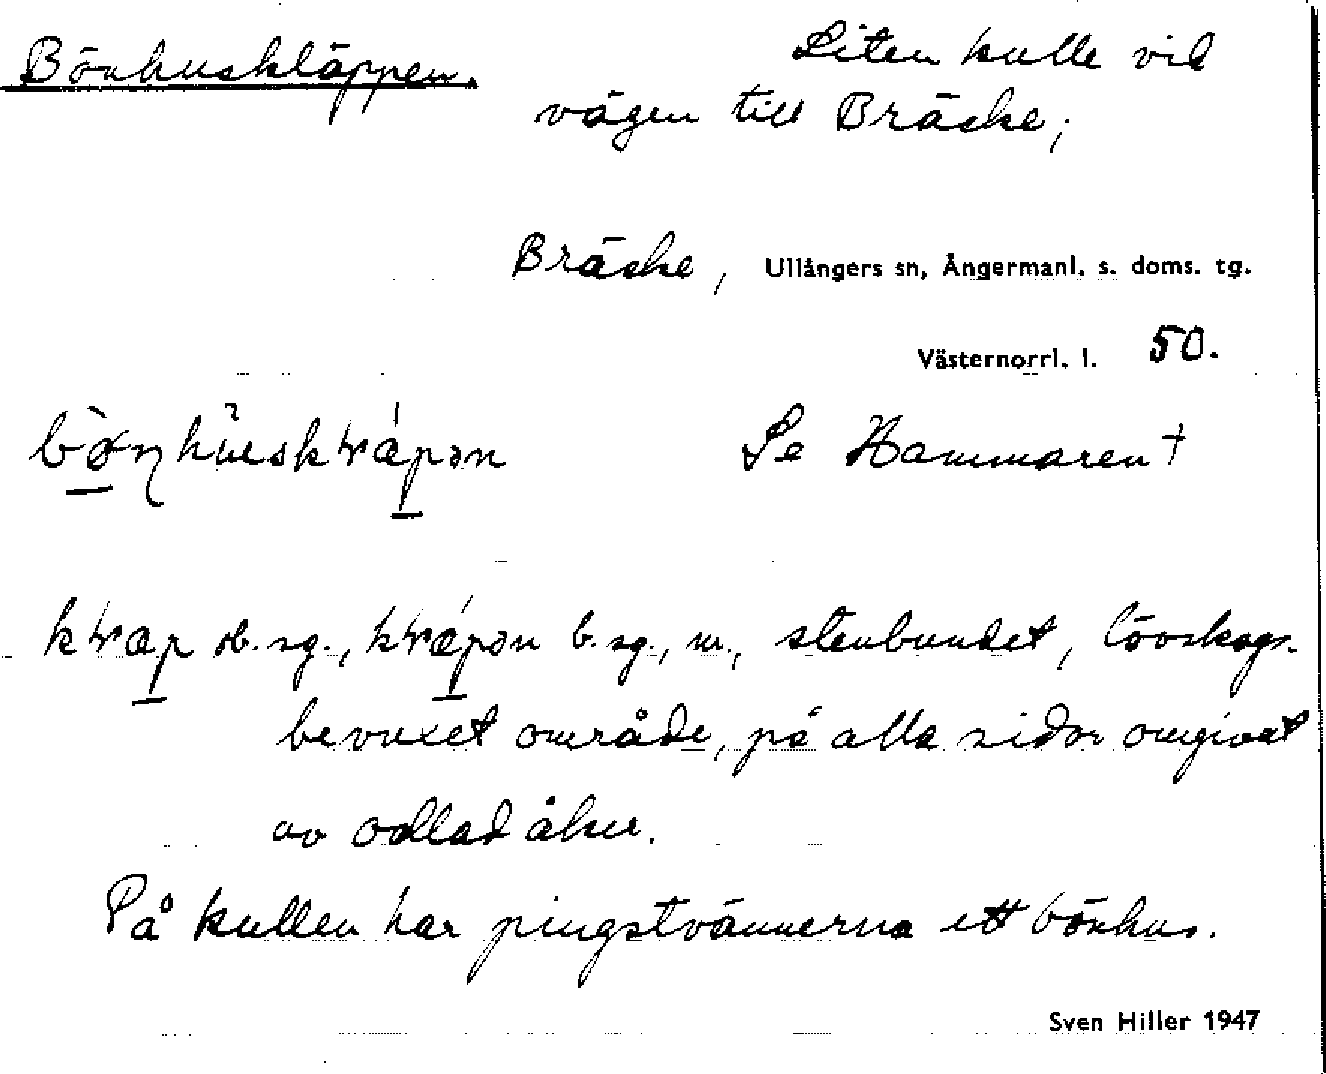 Bönhuskläppen.
Liten kulle vid
vägen till Bräcke;
Bräcke, Ullångers sn, Ångermanl. s. doms. tg.
Västernorrl. l. 50.
Se Hammaren †
ob. sg., b. sg., m., stenbundet, lövskogs-
bevuxet område, på alla sidor omgivet
av odlad åker.
På kullen har pingstvännerna ett bönhus.
Sven Hiller 1947